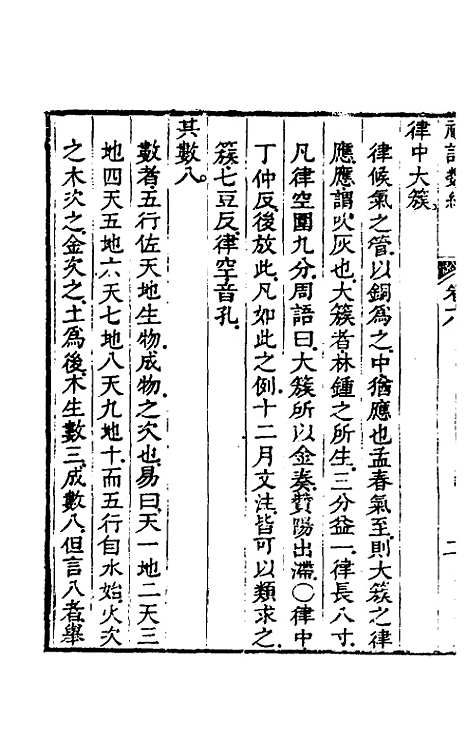 卷六
二
律中大簇
律候氣之管以銅爲之中猶應也孟春氣至則大簇之律
應應謂吹灰也大簇者林鍾之所生三分益一律長八寸
凡律空圍九分周語曰大簇所以金奏贊陽出滯〇律中
丁仲反後放此凡如此之例十二月文注皆可以類求之
簇七豆反律空音孔
其數八
數者五行佐天地生物成物之次也易曰天一地二天三
地四天五地六天七地八天九地十而五行自水始火次
之木次之金次之土爲後木生數三成數八但言八者舉